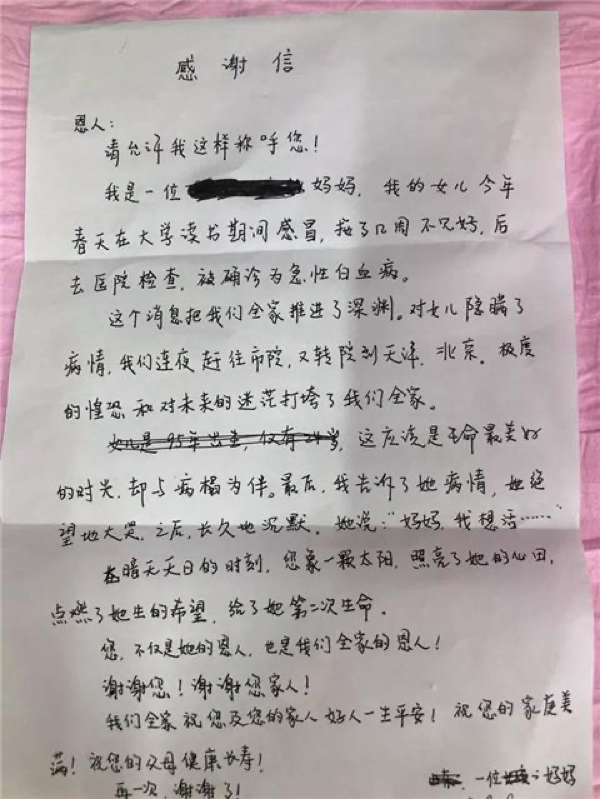 感谢信
恩人:
请允许我这样称呼您!
我是一位 妈妈,我的女儿今年
春天在大学读书期间感冒,拖了几周不见好,后
去医院检查,被确诊为急性白血病。
这个消息把我们全家推进了深渊。对女儿隐瞒了
病情,我们连夜赶往市院,又转院到天津、北京。极度
的惶恐和对未来的迷茫打垮了我们全家。
女儿是95年出生,仅有24岁,这应该是生命最美好
的时光,却与病榻为伴。最后,我告诉了她病情,她绝
望地大哭,之后,长久地沉默。她说:“妈妈,我想活……”
在暗无天日的时刻,您象一颗太阳,照亮了她的心田,
点燃了她生的希望,给了她第二次生命。
您,不仅是她的恩人,也是我们全家的恩人!
谢谢您!谢谢您家人!
我们全家祝您及您的家人好人一生平安!祝您的家庭美
满!祝您的父母健康长寿!
再一次,谢谢了! 一位 妈妈